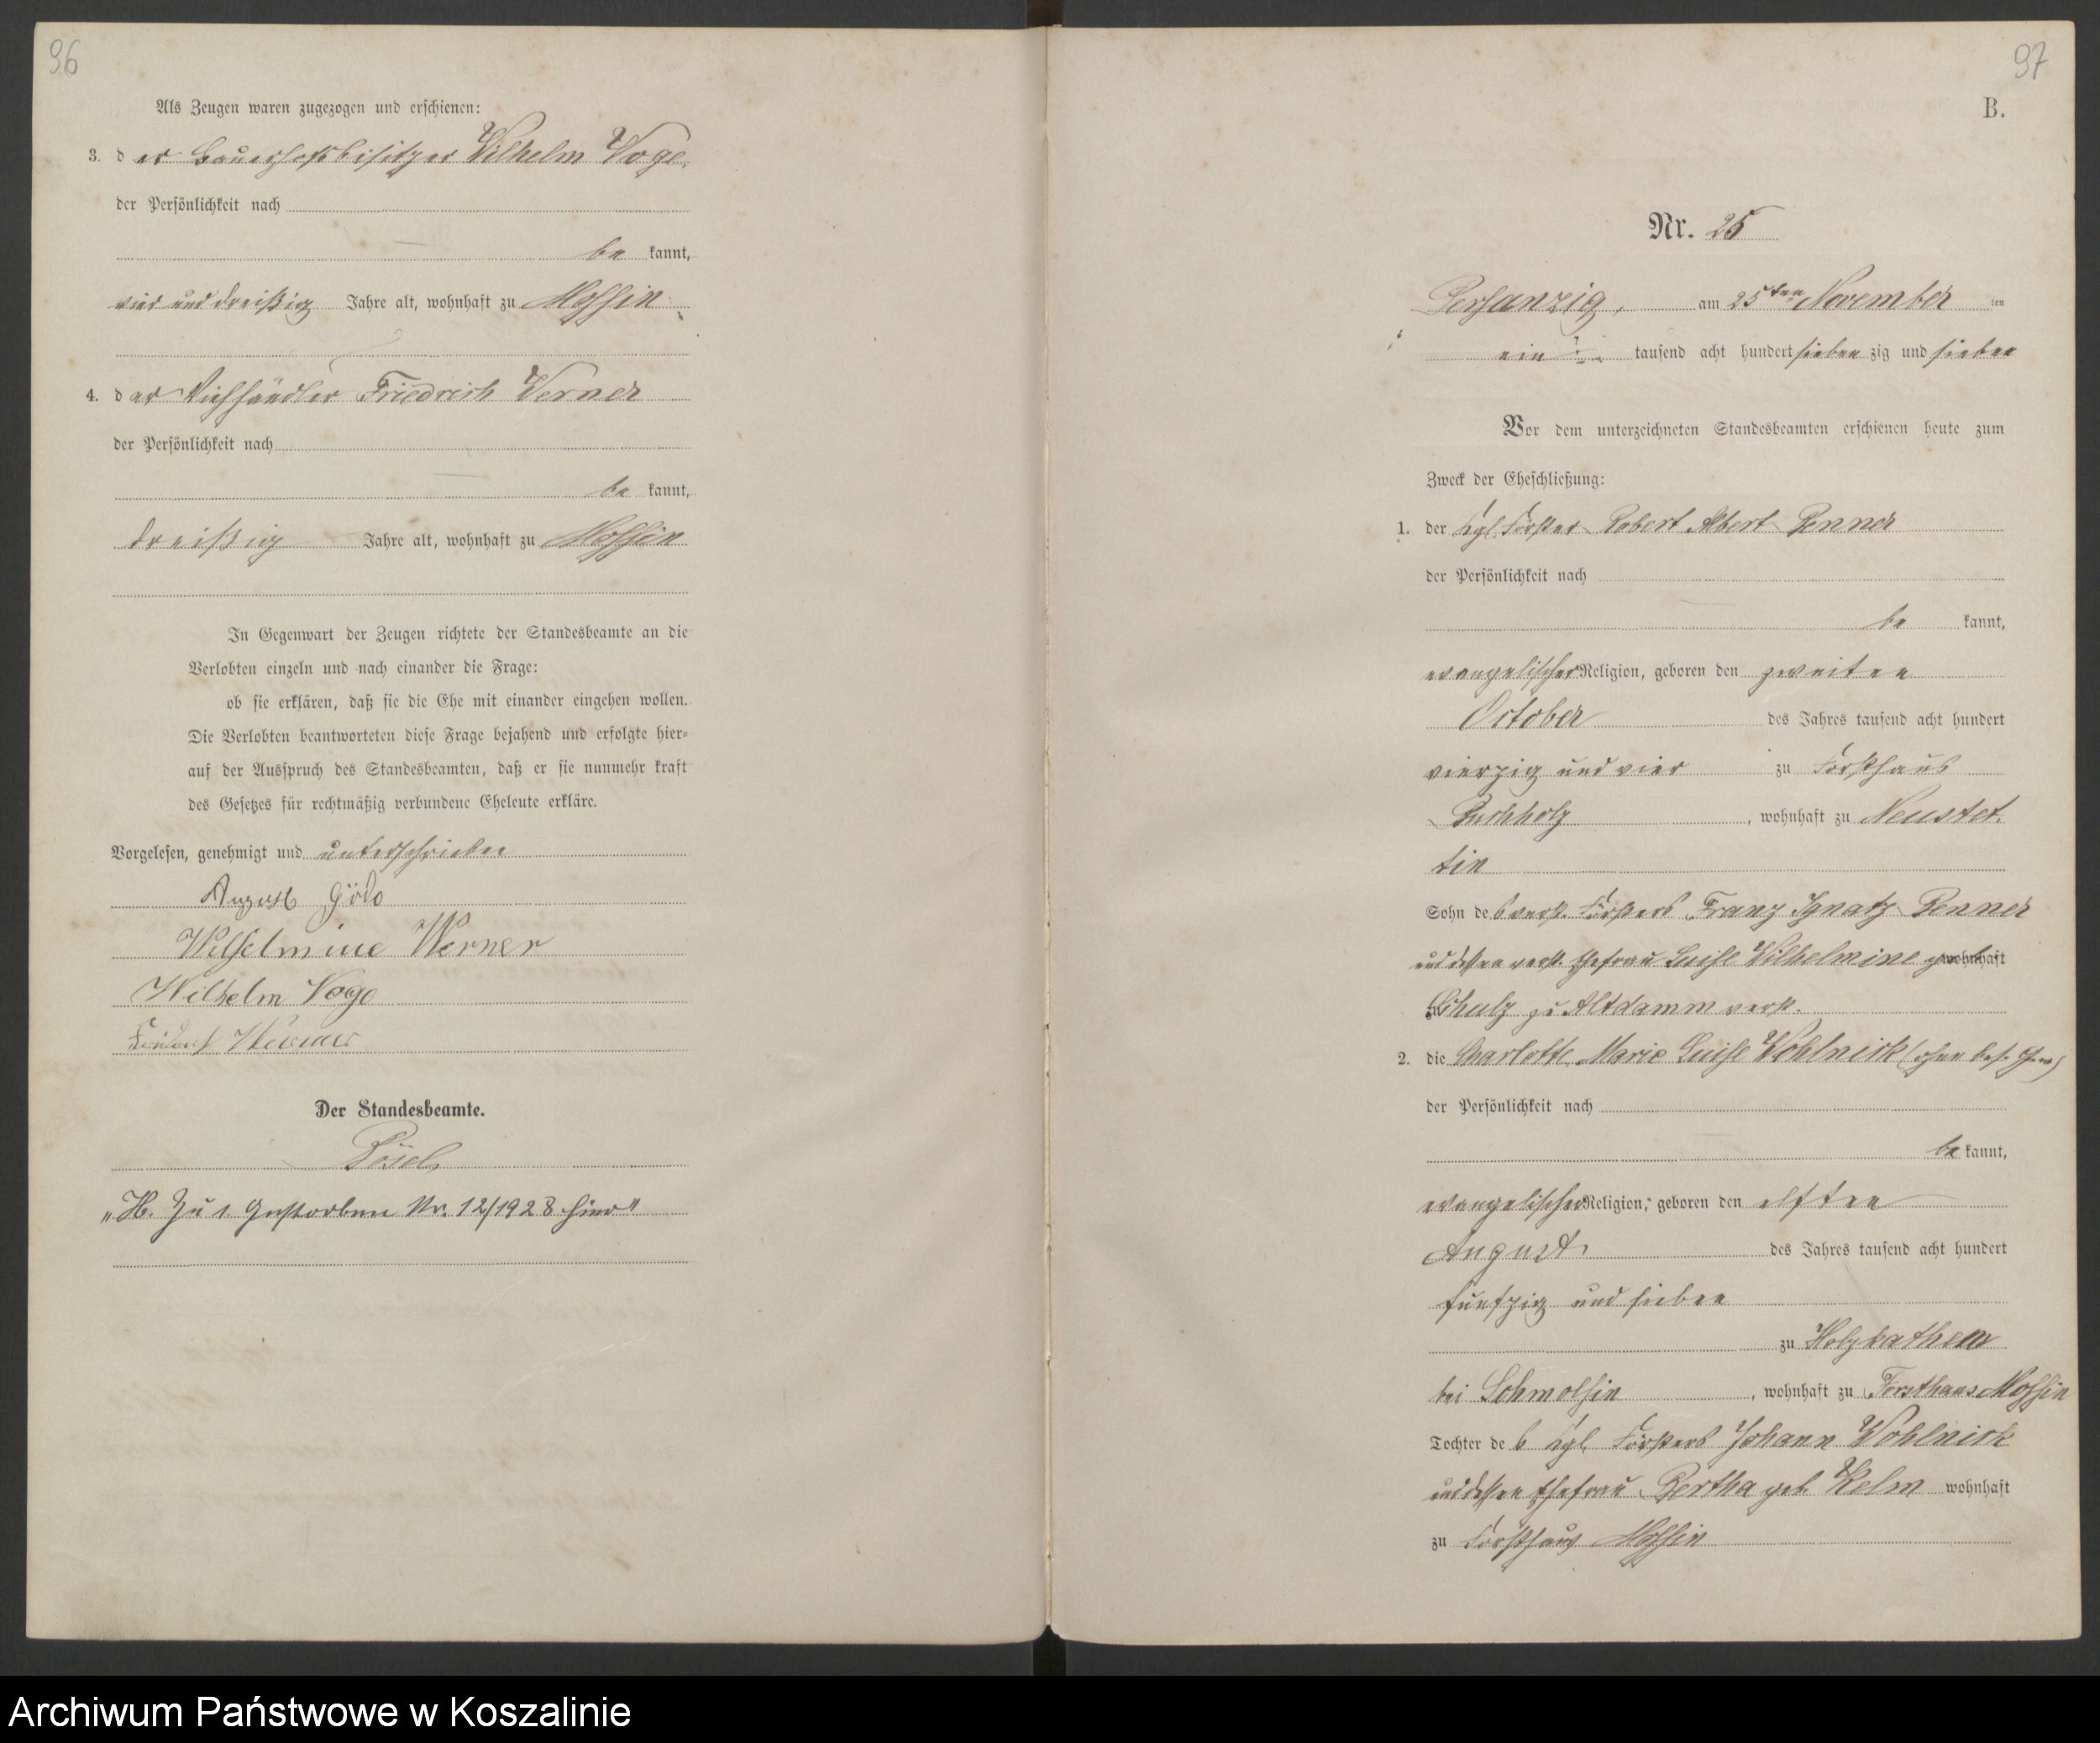 96
Als Zeugen waren zugezogen und erschienen:
3. d er Bauerhofsbesitzer Wilhelm Voge,
der Persönlichkeit nach
be kannt,
vier und dreißig Jahre alt, wohnhaft zu Mossin
4. d er Viehhändler Friedrich Werner
der Persönlichkeit nach
be kannt,
dreißig Jahre alt, wohnhaft zu Mossin
In Gegenwart der Zeugen richtete der Standesbeamte an die
Verlobten einzeln und nach einander die Frage:
ob sie erklären, daß sie die Ehe mit einander eingehen wollen.
Die Verlobten beantworteten diese Frage bejahend und erfolgte hier-
auf der Ausspruch des Standesbeamten, daß er sie nunmehr kraft
des Gesetzes für rechtmäßig verbundene Eheleute erkläre.
Vorgelesen, genehmigt und unterschrieben
August
Wilhelmine Werner
Wilhelm Voge
Friedrich Werner
Der Standesbeamte.
"H. Zu 1. Gestorben Nr. 12/1928 hier"
97
B.
Nr. 25
Persanzig, am 25ten November ten
ein tausend acht hundert sieben zig und sieben
Vor dem unterzeichneten Standesbeamten erschienen heute zum
Zweck der Eheschließung:
1. der Kgl. Förster Robert Albert Renner
der Persönlichkeit nach
be kannt,
evangelischer Religion, geboren den zweiten
October des Jahres tausend acht hundert
vierzig und vier zu Forsthaus
Buchholz, wohnhaft zu Neustet-
tin
Sohn des verst. Försters Franz Ignatz Renner
und dessen verst. Ehefrau Luise Wilhelmine geb. wohnhaft
zu Schulz zu Altdamm verst.
2. die Charlotte Marie Luise Wohlnick (ohne bes. Gew)
der Persönlichkeit nach
be kannt,
evangelischer Religion, geboren den elften
August des Jahres tausend acht hundert
funfzig und sieben
zu Holzkathen
bei Schmolsin, wohnhaft zu Forsthaus Mossin
Tochter des Kgl. Försters Johann Wohlnick
und dessen Ehefrau Bertha geb. Kelm wohnhaft
zu Forsthaus Mossin
Archiwum Państwowe w Koszalinie